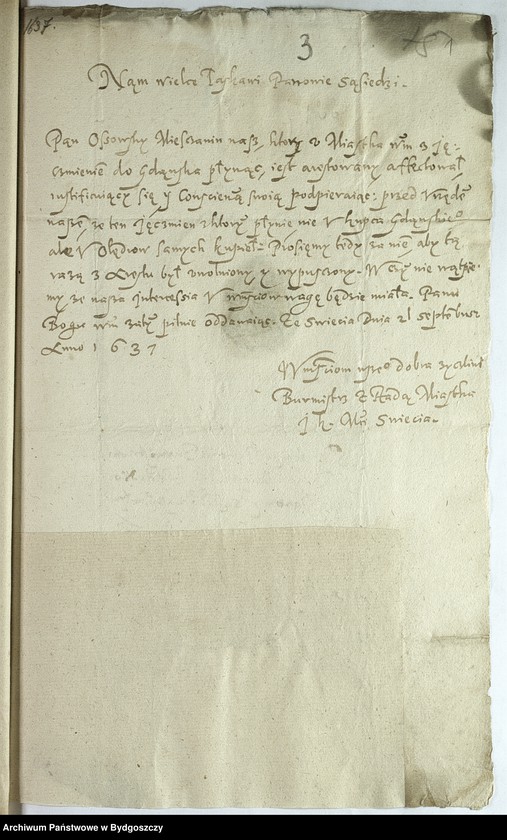 1637.
3
Nąm wielce Łaskawi Panowie Sąsiedzi.
Pan Ossowsky Miesczanin nasz, ktory z Miastka Wm z Ję:
czmieniem do Gdąnska płynąc, jest arestowany affectował
iustificuiącz się y Conscienzą swoią podpieraiąc: przed Urzędẽ
naszẽ, ze ten Jęczmien z ktorỹ płynie nie V kupca Gdąnskie°
ale V Olędrow samych kupieł: Prosięmy tedy za nie, aby tą
razą z Arestu był zwolniony y wypusczony. W czỹ nie wątpie:
my ze nasza Interessia V wagę będzie miała. Panu
Bogu wm zatỹ pilnie oddawaiąc. Ze Swiecia Dnia 21 septembris
Anno 1637
dobra zyczliwi
Burmistrz Z Radą Miastka
J. K. Mći Swiecia.
Archiwum Państwowe w Bydgoszczy